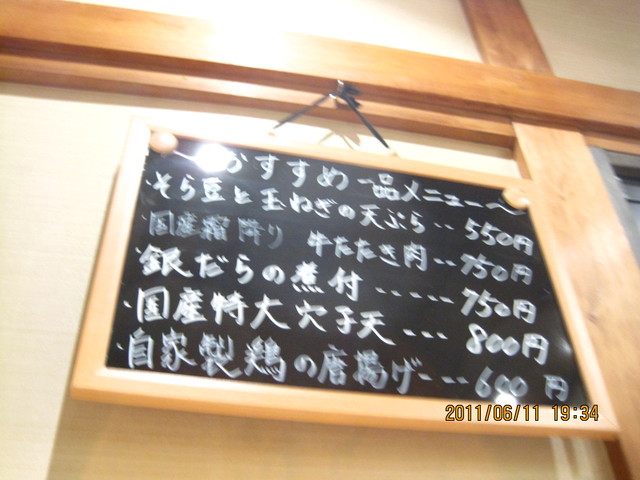 〜おすすめ一品メニュー〜
・そら豆と玉ねぎの天ぷら‥550円
国産霜降り 牛たたき肉‥750円
・銀だらの煮付‥‥‥750円
・国産特大穴子天‥‥800円
・自家製鶏の唐揚げ‥‥600円
2011/06/11 19:34